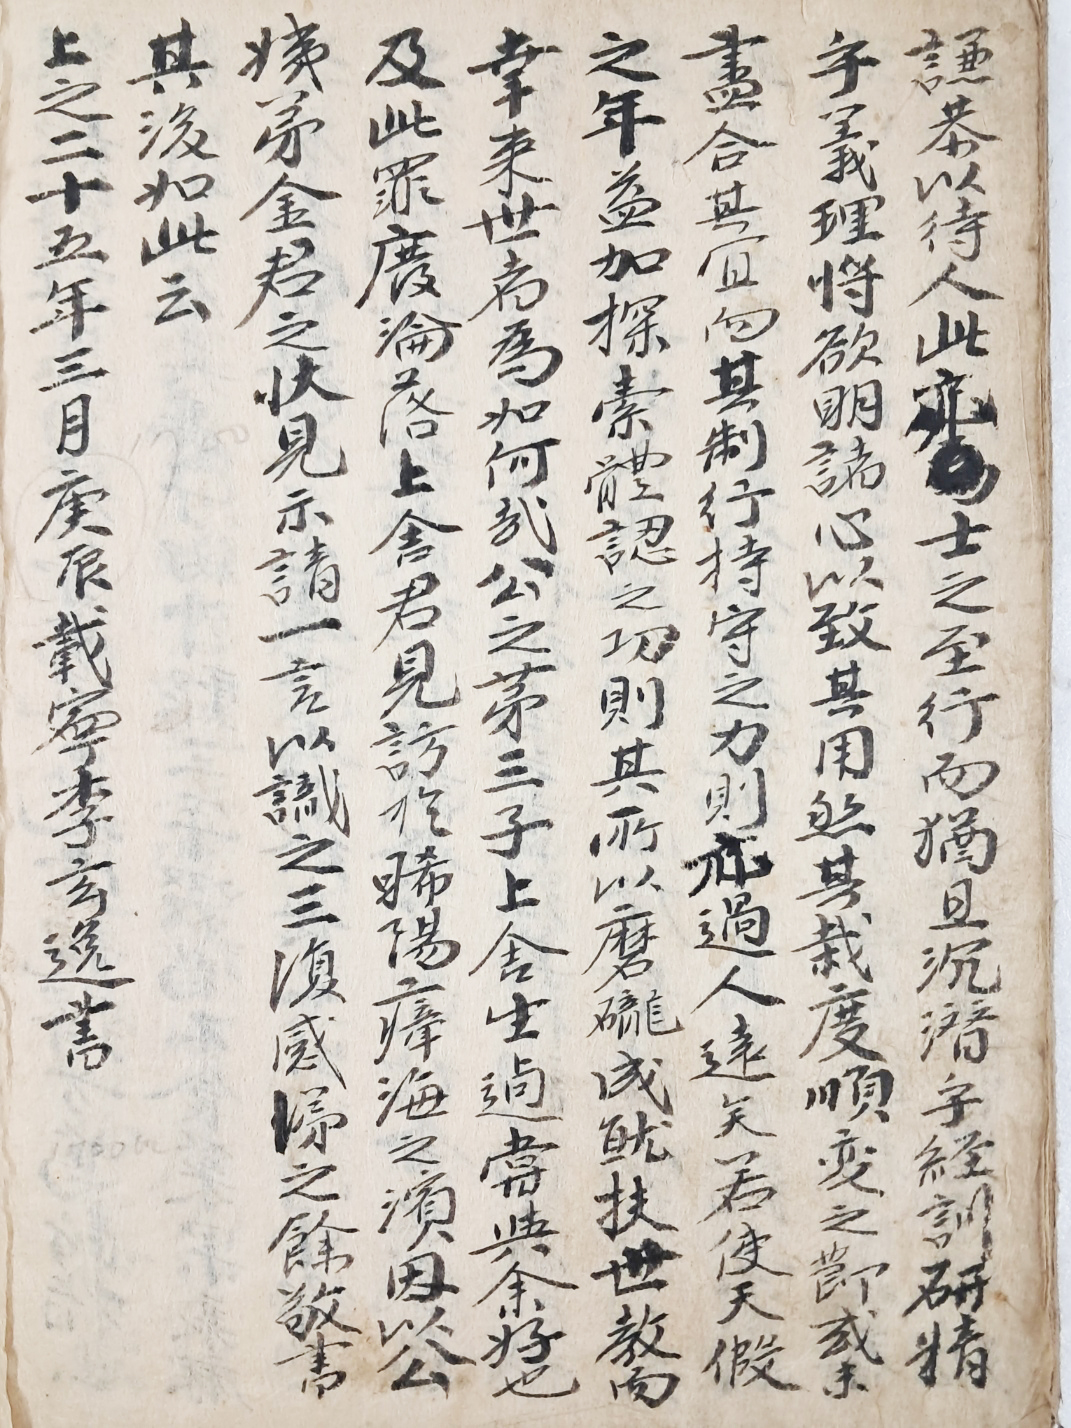 謙恭以待人此亦士之至行而猶且沉潛字經訓硏精
字義理將欲明諸心以致其用然其裁度順変之節或未
盡合其宜而其制行持守之力則亦過人遠矣若使天假
之年益加探索軆認之功則其所以磨礲成就扶世教而
幸来世者爲如何哉公之茅三子上舍生逈甞與余好也
及此罪廢淪落上舍君見訪於晞陽瘴海之濱因以公
姨弟金君之狀見示請一言以識之三復感㥠之餘敬書
其後如此云
上之二十五年三月庚辰載寧李玄逸書